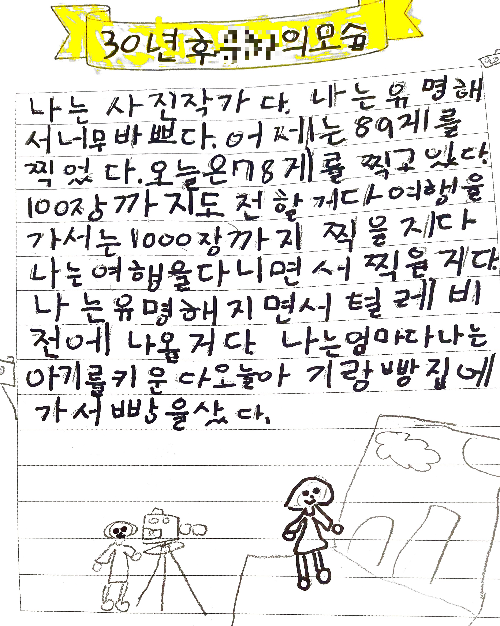 30년 후 의 모습
나는 사진작가다. 나는 유명해
서 너무 바쁘다. 어제는 89개를
찍었다. 오늘은 78개를 찍고 있다.
100장까지도 전할거다 여행을
가서는 1000장까지 찍을 거다
나는 여행을 다니면서 찍을 거다.
나는 유명해지면서 텔레비
전에 나올 거다. 나는 엄마다 나는
아기를 키운다 오늘 아기랑 빵집에
가서 빵을 샀다.